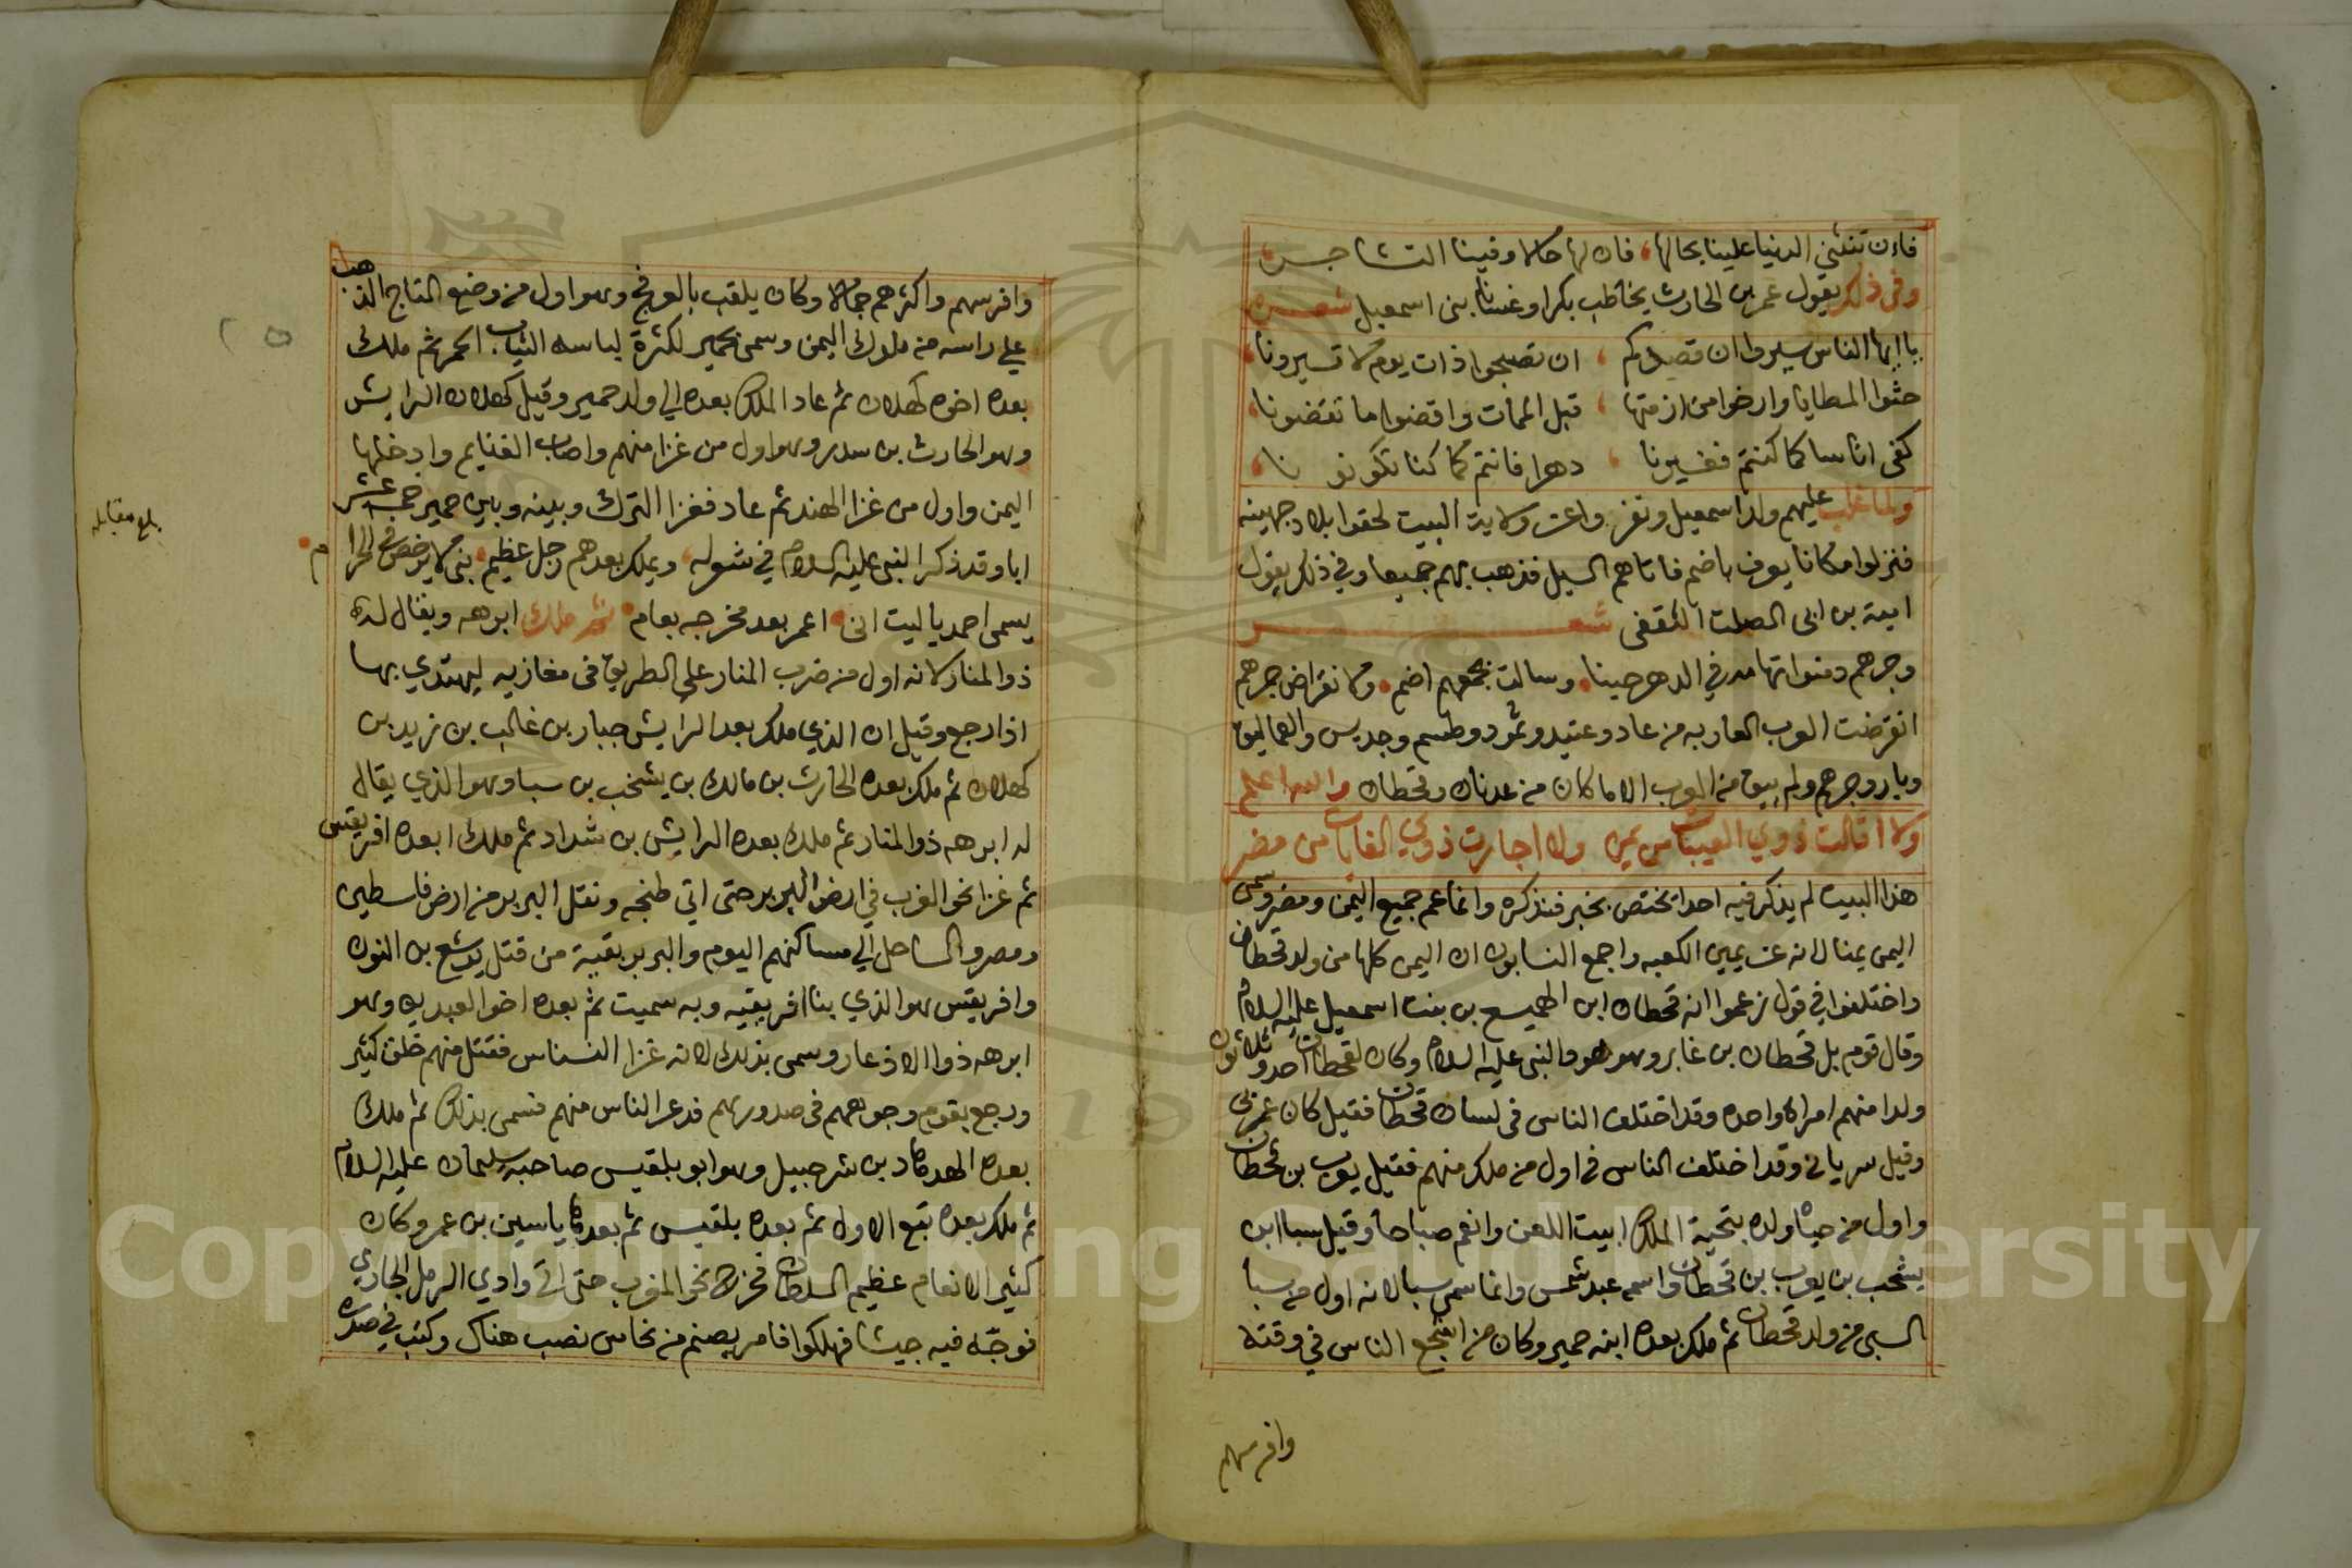 فاءن تنثني الدنيا علينا بحالها، فان لها حالا وفينا التشاجر
وفي ذلك يقول عمر بن الحارث يخاطب بكرا وغسانا بني اسمعيل شعر
يا ايها الناس سيروا ان قصركم ، ان تصبحوا ذات يوم لا تسيرونا،
حثوا المطايا وارخوا من ازمتها ، قبل الممات واقضوا ما تقضونا،
كنى اناسا كما كنتم فغيرنا ، دهر فانتم كما كنا تكونونا،
ولما غلب عليهم ولد اسمعيل ونفز واعن ولاية البيت لحقوا ببلاد جهينه
فنزلوا مكانا يعرف باضم فاتاهم السيل فذهب بهم جميعا وفي ذلك يقول
امية بن ابي الصلت الثقفي شعر
وجرهم دمنوا تهامه في الدهر حينا، وسالت بجمعهم اضم، ولانقراض جرهم
انقرضت العرب العاربه من عاد وعتيد وثمود وطسم وجديس والعماليق
وبار وجرهم ولم يبق من العرب الا ما كان من عدنان وقحطان والله اعلم
ولا اقالت ذوي الهيبات من يمن ولا اجارت ذوي الغايات من مضر
هذا البيت لم يذكر فيه احدا يختص بخبر فنذكره وانما عم جميع اليمن ومضر وسمى
اليمن يمنا لانه عن يمين الكعبه واجمع النسابون ان اليمن كلها من ولد قحطان
واختلفوا في قول زعموا انه قحطان ابن الهميسع بن بنت اسمعيل عليه السلام
وقال قوم بل قحطان بن غابر وهو هود النبي عليه السلام وكان لقحطان احد وثلاثون
ولدا منهم امراة واحده وقد اختلف الناس في لسان قحطان فقيل كان عربي
وقيل سرياني وقد اختلف الناس في اول من ملك منهم فقيل يعرب بن قحطان
واول من حياه ولده بتحية الملك ابيت اللعن وانعم صباحا وقيل سبا ابن
يشخب بن يعرب بن قحطان واسمه عبد شمس وانما سمي سبا لانه اول من سبا
السبي من ولد قحطان ثم ملك بعده ابنه حمير وكان من اشجع الناس في وقته
وافرسهم
وافرسهم واكثرهم جمالا وكان يلقب بالعرنج وهو اول من وضع التاج الذهب
على راسه من ملوك اليمن وسمى بحمير لكثرة لباسه الثياب الحمر ثم ملك
بعده اخوه كهلان ثم عاد الملك بعده الي ولد حمير وقيل كهلان الرايش
وهو الحارث بن سدد وهو اول من غزا منهم واصاب الغنايم وادخلها
اليمن واول من غزا الهند ثم عاد فغزا الترك وبينه وبين حمير خمسة عشر
ابا وقد ذكر النبي عليه السلام في شعوله، ويملك بعدهم رجل عظيم، نبي لا يرخص في الحرام
يسمى احمد يا ليت اني، اعمر بعد مخرجه بعام، ثم ملك ابرهه ويقال له
ذو المنار لانه اول من ضرب المنار على الطريق في مغازيه ليهتدي بها
اذا رجع وقيل ان الذي ملك بعد الرايش جبار بن غالب بن زيد بن
كهلان ثم ملك بعده الحارث بن مالك بن يشخب بن سبا وهو الذي يقال
له ابرهه ذو المنار ثم ملك بعده الرايش بن شداد ثم ملك ابعده افريقس
ثم غزا نحو الغرب في ارض البربر حتى اتي طنجه ونقل البربر من ارض فلسطين
ومصر والساحل الي مساكنهم اليوم والبربر بقية من قتل يوشع بن النون
وافريقس هو الذي بنا افريقيه وبه سميت ثم بعده اخو العبد بن وهو
ابرهه ذوا الاذعار وسمى بذلك لانه غزا النسناس فقتل منهم خلق كثير
ورجع بقوم وجوههم في صدورهم فذعر الناس منهم فسمى بذلك ثم ملك
بعده الهدهاد بن شرحبيل وهو ابو بلقيس صاحبة سليمان عليه السلام
ثم ملك بعده تبع الاول ثم بعده بلقيس ثم بعدها ياسين بن عمرو كان
كثير الانعام عظيم السلطان فخرج نحو المغرب حتى اتى وادي الرمل الجاري
فوجه فيه جيشا فهلكوا فامر بصنم من نحاس نصب هناك وكتب في صدره
بلغ مقابله
٢٥
Copyright © King Saud University